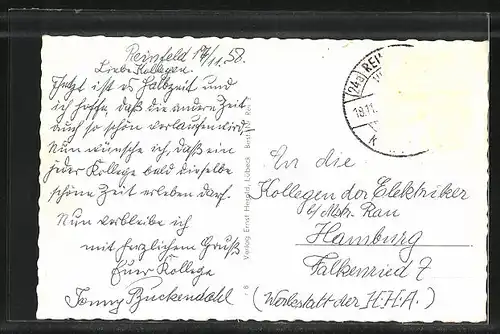 Reinfeld 17/11.58.
Liebe Kollegen.
Jetzt ist es Halbzeit und
ich hoffe, daß die andere Zeit
auch so schön verlaufen wird.
Nun wünsche ich, daß ein
jeder Kollege bald dieselbe
schöne Zeit erleben darf.
Nun verbleibe ich
mit herzlichem Gruß
Euer Kollege
Jonny Buckendahl
Verlag Ernst Lübeck
(24a) REI
18.11.
An die
Kollegen der Elektriker
b/Mstr. Rau
Hamburg
Falkenried 7
(Werkstatt der H.H.A.)